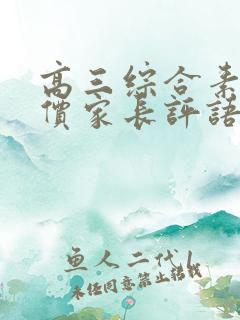 高三綜合素
價家長評語
魚人二代/
未经同意禁止转载